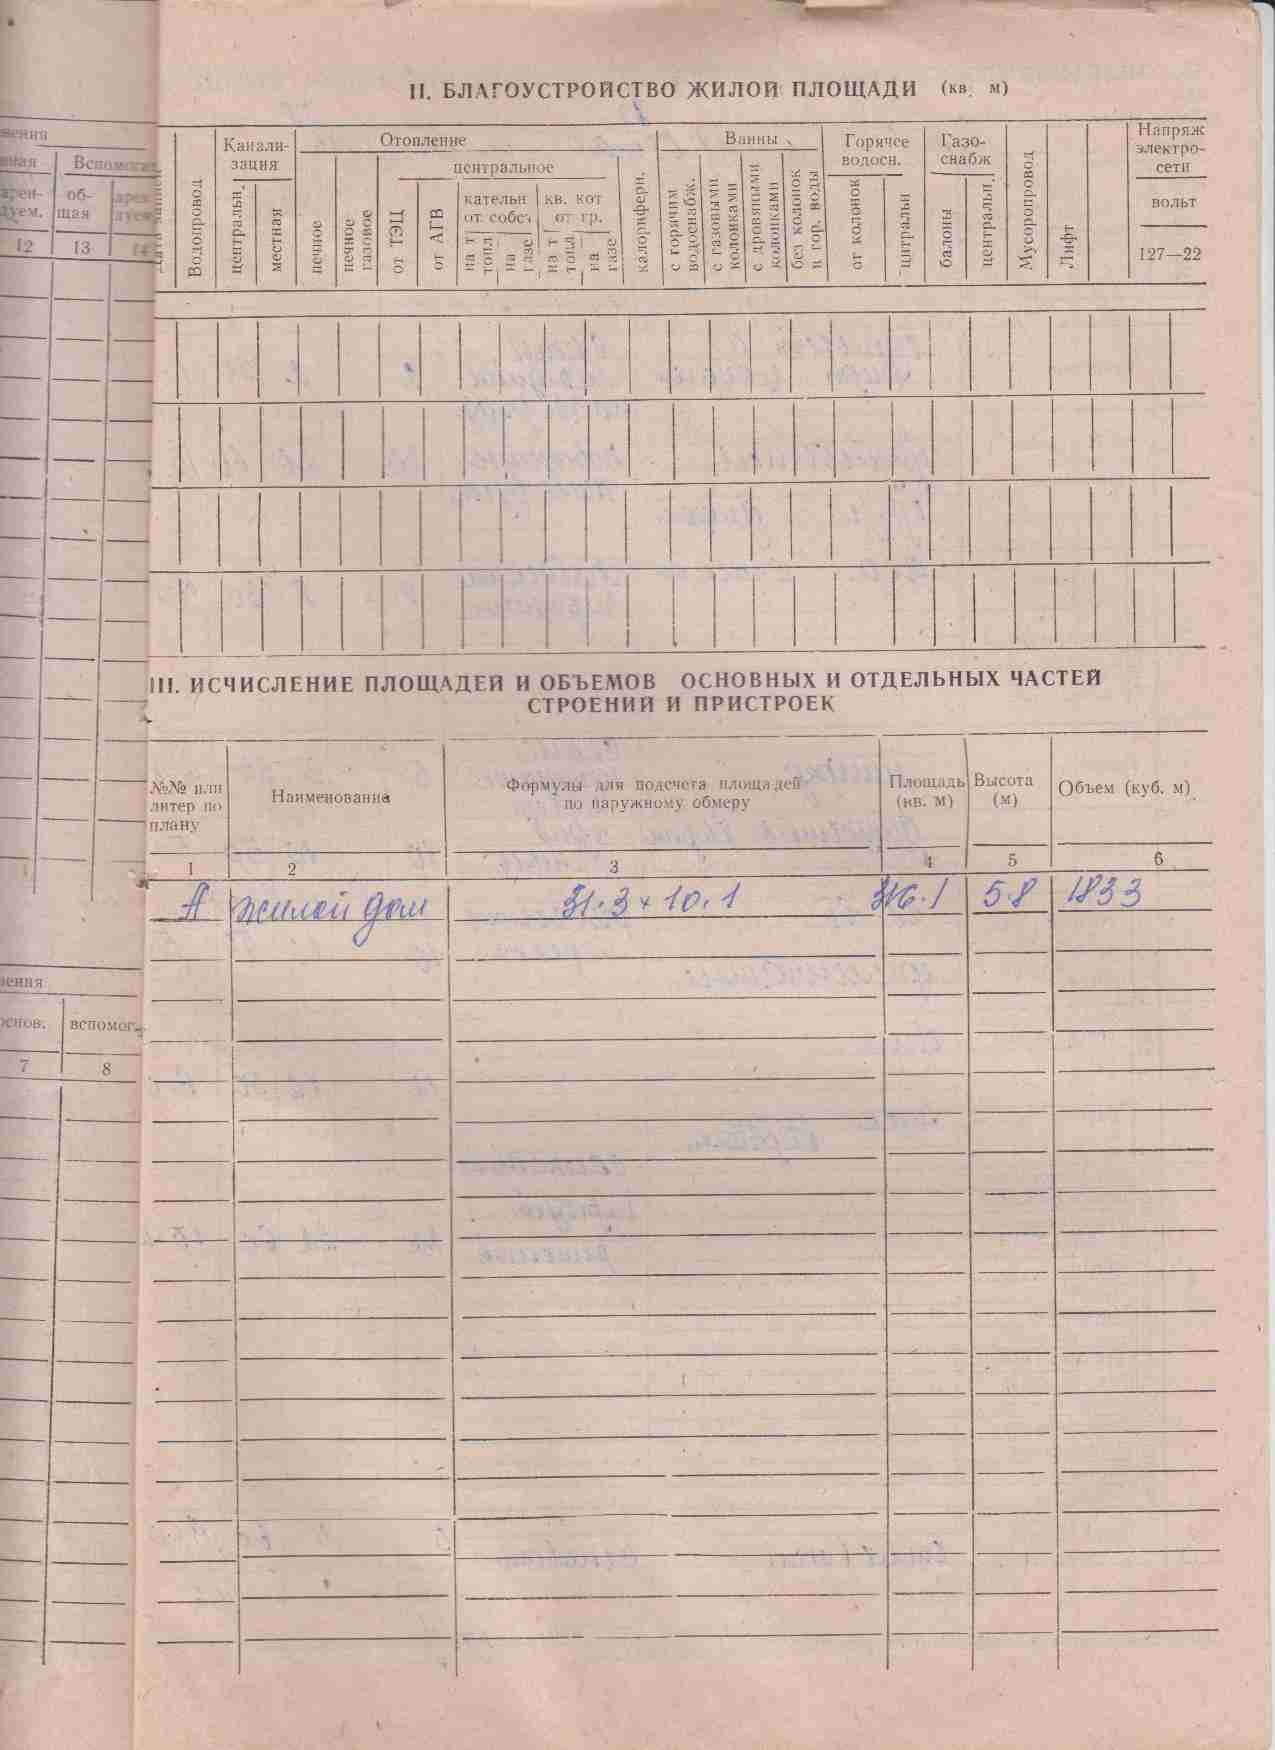 II. БЛАГОУСТРОЙСТВО ЖИЛОЙ ПЛОЩАДИ (кв. м)
Водопровод
Канали-
зация
центральн.
местная
Отопление
печное
печное
газовое
центральное
от ТЭЦ
от АГВ
кательн
от собст
на т
топл
на
газе
кв. кот
от гр.
на т
топл
на
газе
калорифери.
Ванны
с горячим
водоснабж.
с газовыми
колонками
с дровяными
колонками
без колонок
и гор. воды
Горячее
водосн.
от колонок
цнтральн
Газо-
снабж
балоны
центральн.
Мусоропровод
Лифт
Напряж
электро-
сети
вольт
127—22
Вспомогат
об-
щая
12
13
14
III. ИСЧИСЛЕНИЕ ПЛОЩАДЕЙ И ОБЪЕМОВ ОСНОВНЫХ И ОТДЕЛЬНЫХ ЧАСТЕЙ
СТРОЕНИЙ И ПРИСТРОЕК
№№ или
литер по
плану
Наименование
Формулы для подсчета площадей
по наружному обмеру
Площадь
(кв. м)
Высота
(м)
Объем (куб. м)
1 2 3 4 5 6
А жилой дом 31.3 × 10.1 316.1 5.8 1833
основ.
вспомог.
7 8